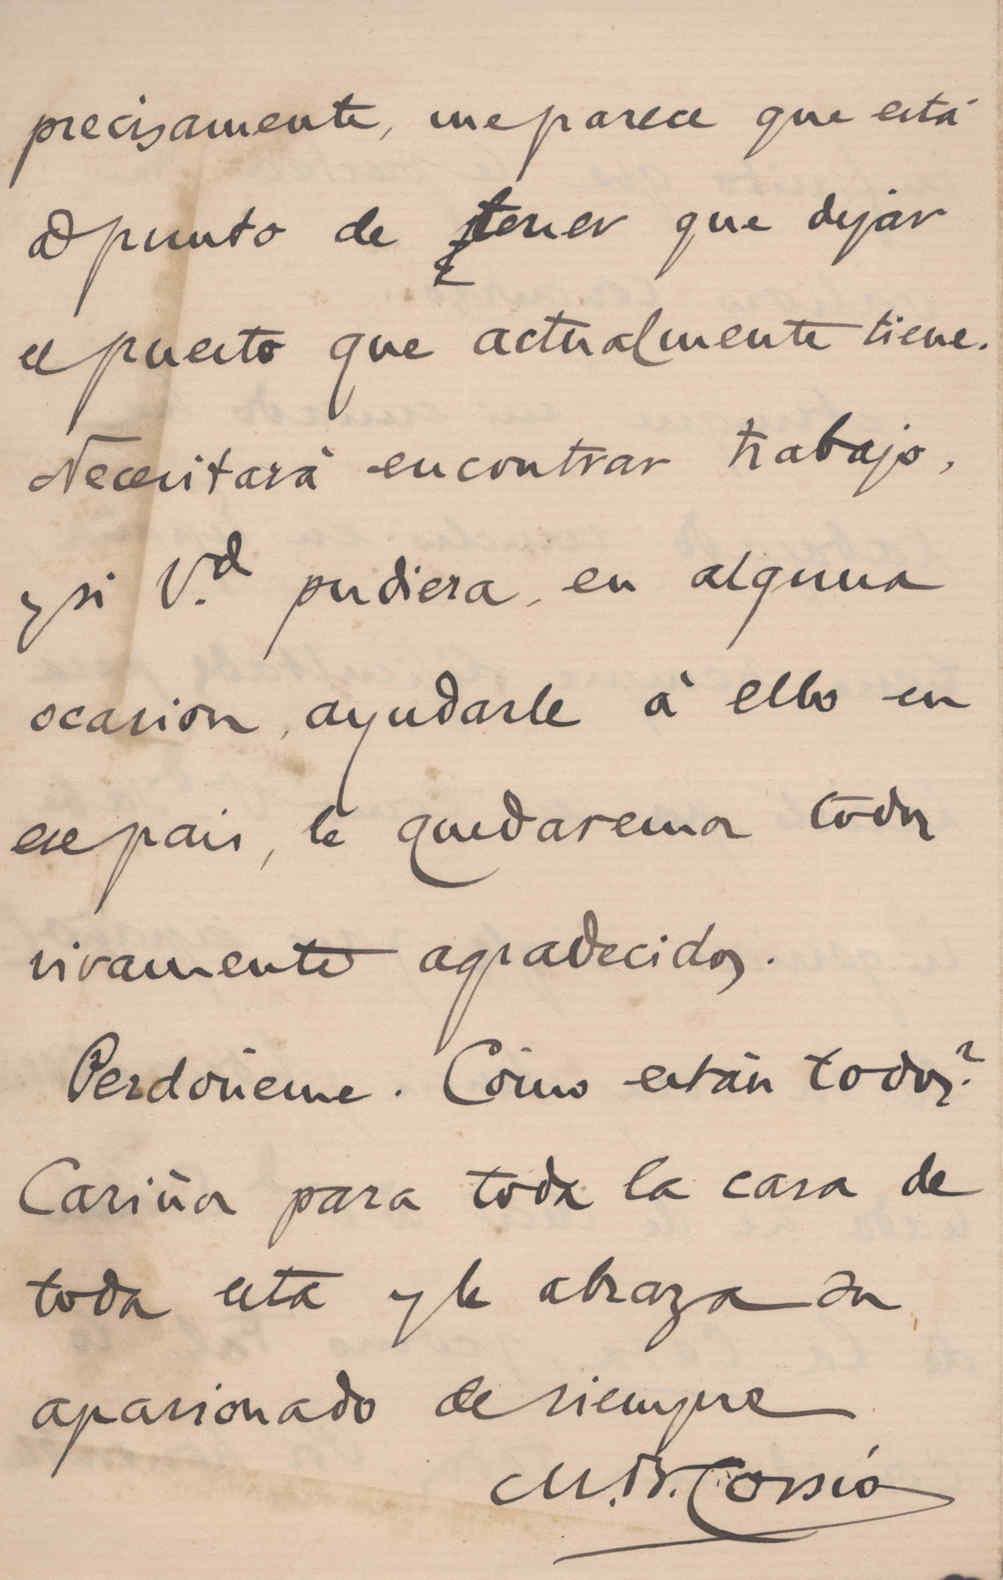 precisamente, me parece que está
a punto de tener que dejar
el puesto que actualmente tiene.
Necesitará encontrar trabajo,
y si V.d pudiera, en alguna
ocasion, ayudarle á ello en
ese pais, le quedaremos todos
vivamente agradecidos.
Perdóneme. Cómo están todos?
Cariños para toda la casa de
toda esta y le abraza su
apasionado de siempre
M. B. Cossío